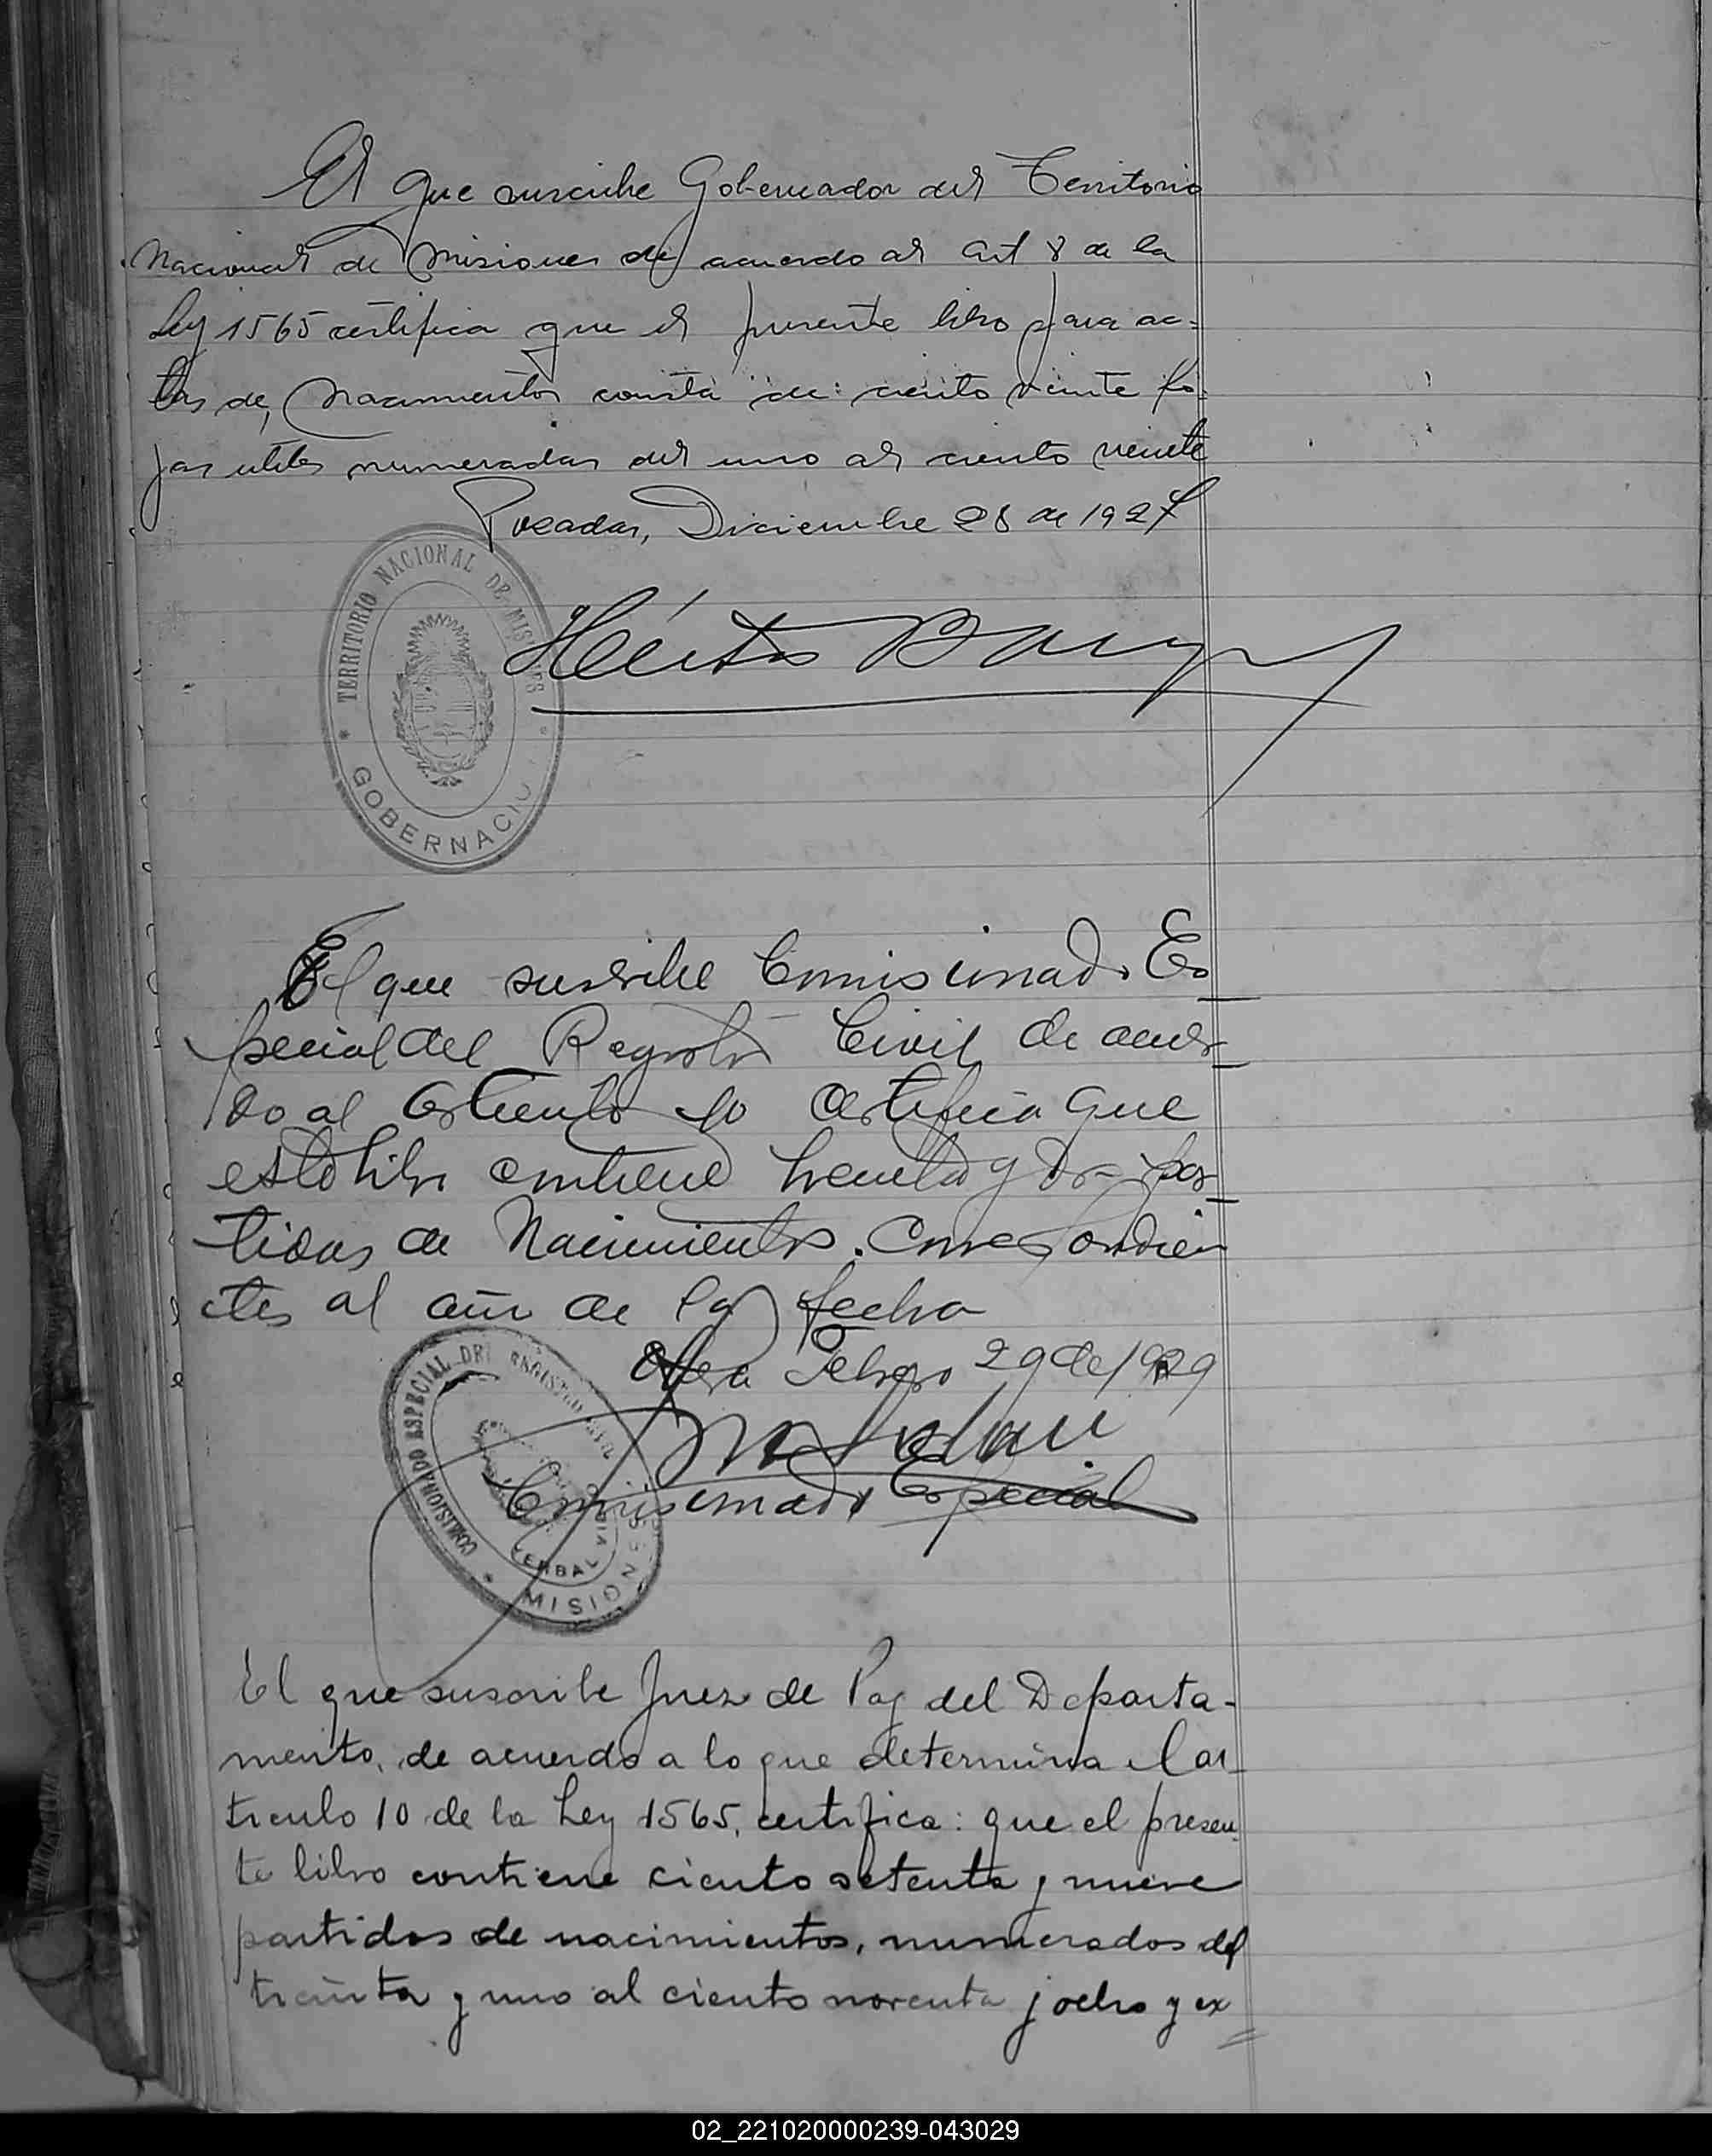 El que suscribe Gobernador del Territorio
Nacional de Misiones de acuerdo al Art 8 de la
Ley 1565 certifica que el presente libro para ac=
tas de Nacimientos consta de: ciento veinte fo-
jas utiles numeradas del uno al ciento veinte
Posadas, Diciembre 28 de 1927
Héctor
TERRITORIO NACIONAL DE MISIONES
GOBERNACIO
El que suscribe Comisionado Es
pecial del Registro Civil de acuer
do al certifica que
este libro contiene treinta y dos par
tidas de Nacimientos. Correspondien
tes al año de la fecha
Febrero 29 de 1929
Comisionado Especial
COMISIONADO ESPECIAL DEL REGISTRO CIVIL
YERBAL VIEJO
MISIONES
El que suscribe Juez de Paz del Departa-
mento, de acuerdo a lo que determina el ar-
ticulo 10 de la Ley 1565, certifica: que el presen
te libro contiene ciento setenta y nueve
partidas de nacimientos, numeradas del
treinta y uno al ciento noventa y ocho y ex
=
02_221020000239-043029